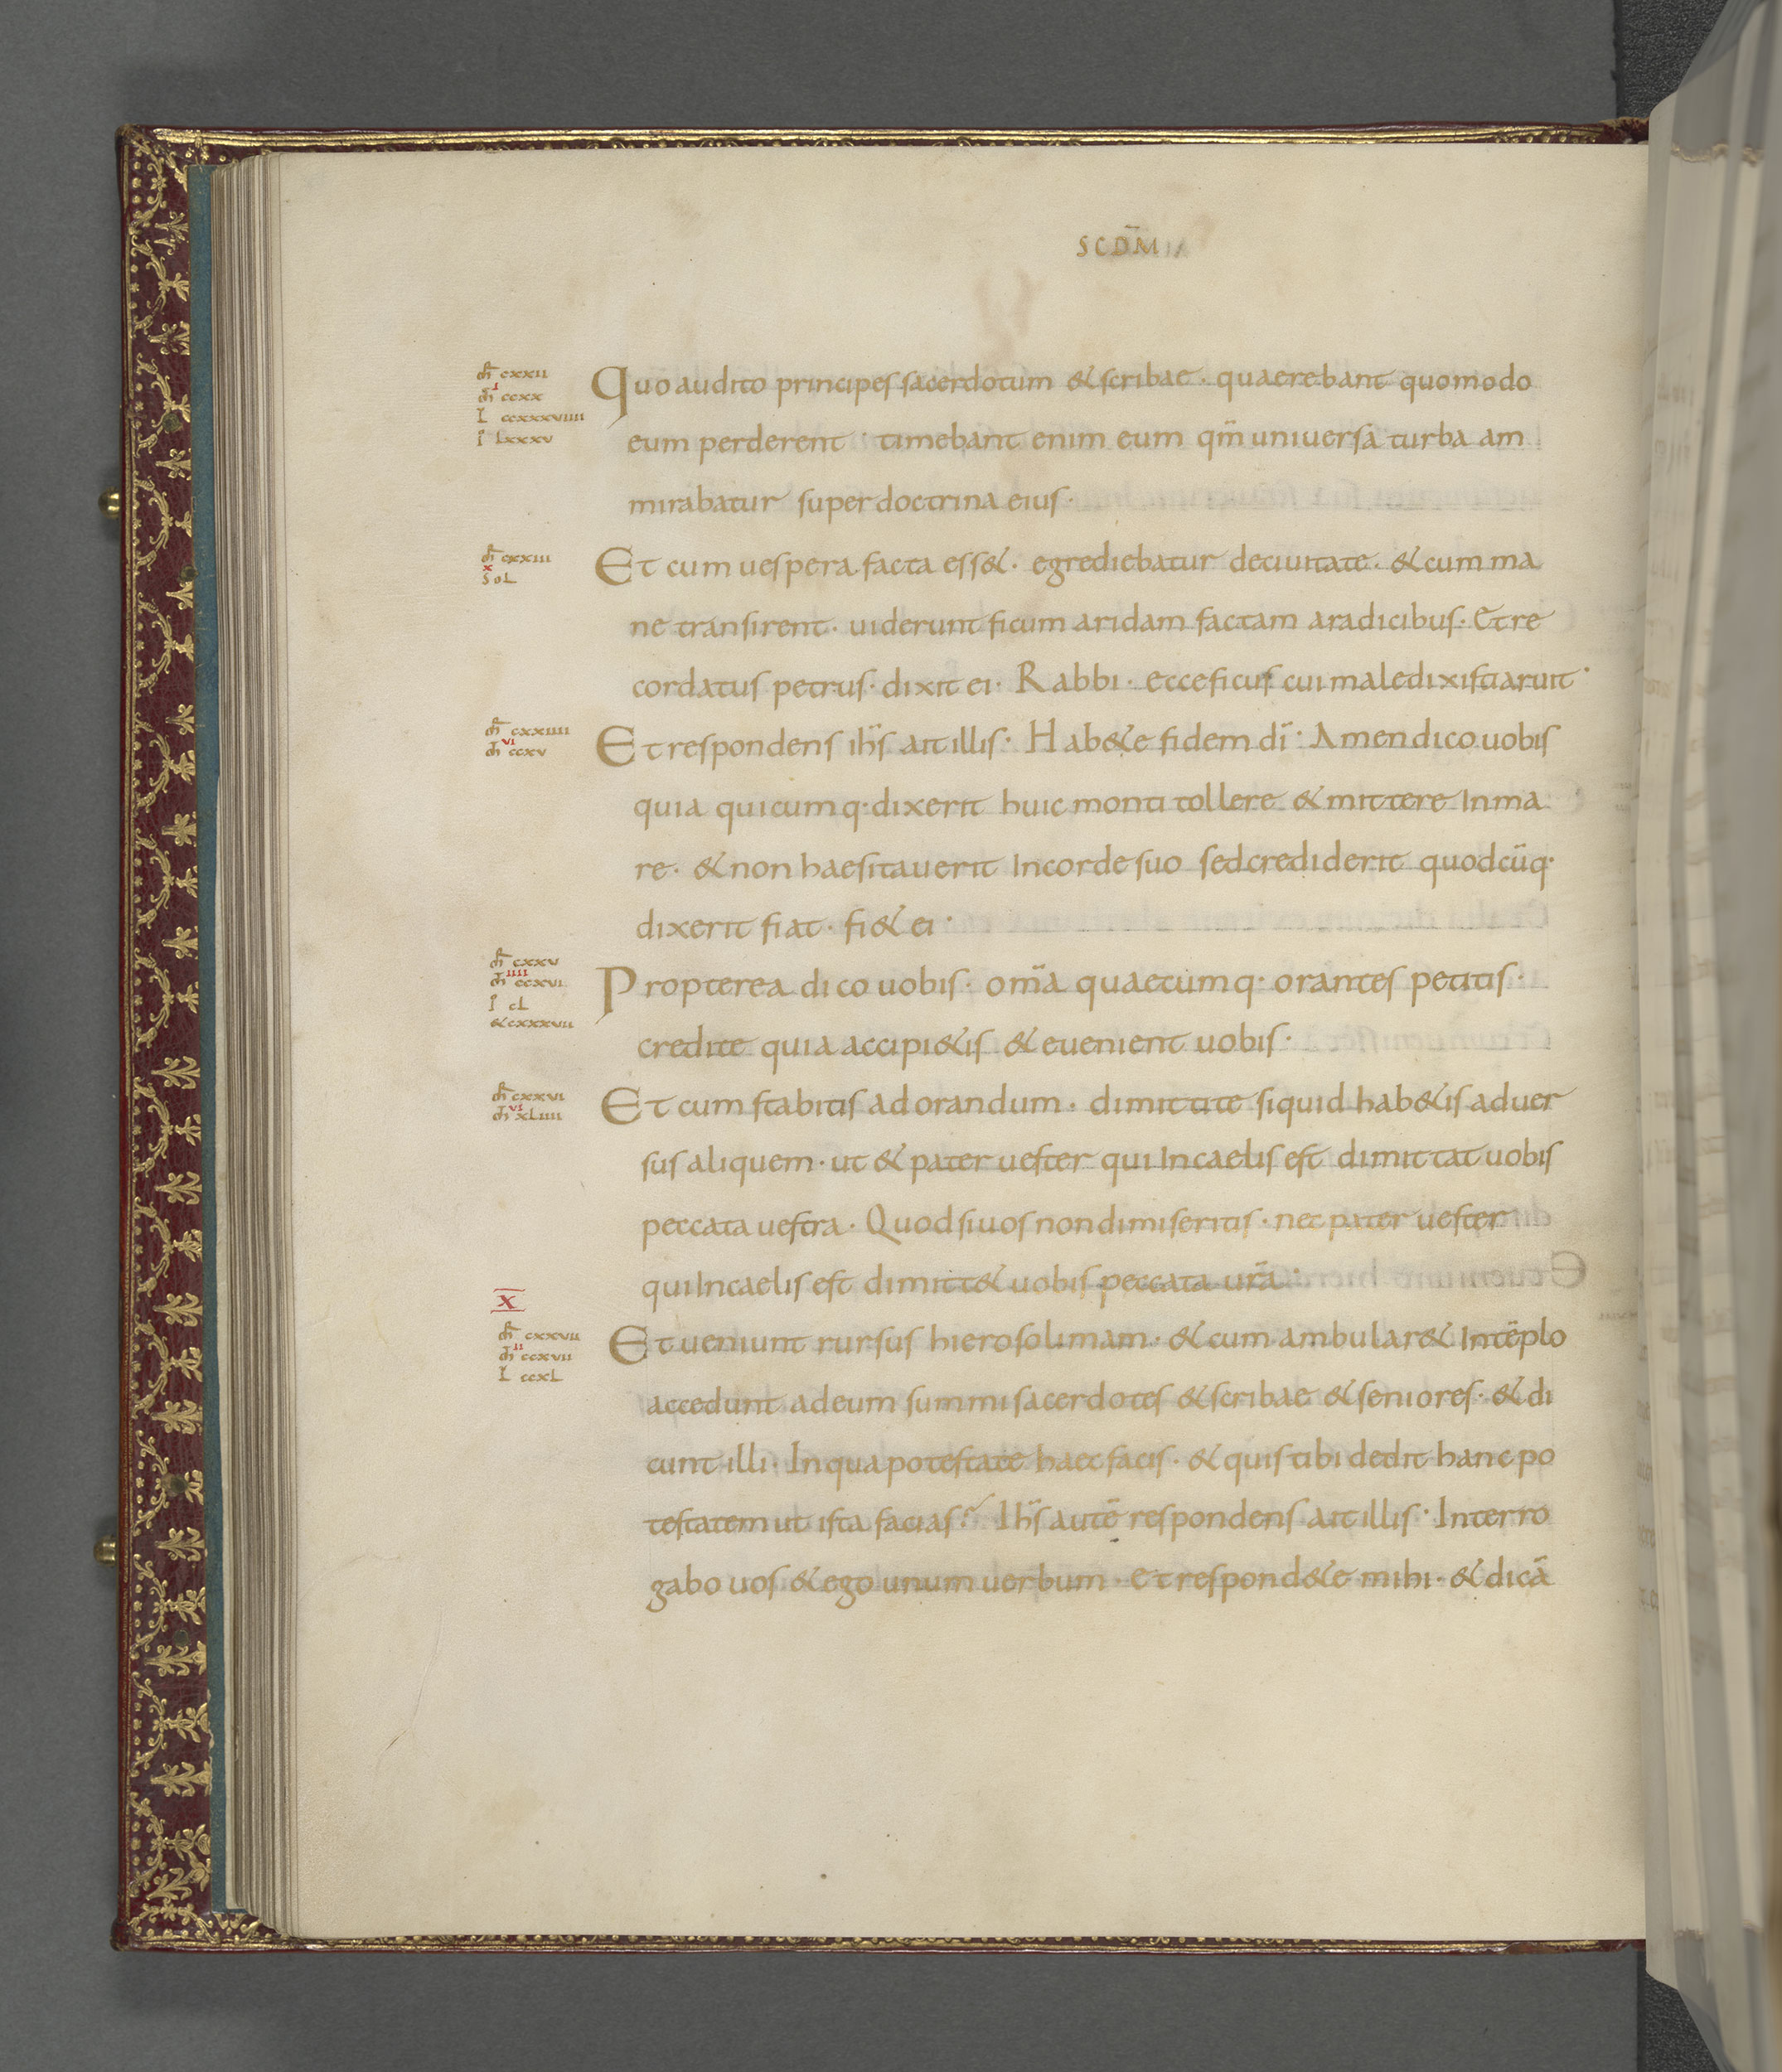 SCDM̄
mr̄ cxxii
i
mt̄ ccxx
L̄ ccxxxviiii
ī lxxxv
Quo audito principes sacerdotum & scribae · quaerebant quomodo
eum perderent · timebant enim eum qm̄ uniuersa turba am
mirabatur super doctrina eius ·
mr̄ cxxiii
x
SoL
Et cum uespera facta ess& · egrediebatur deciuitate · & cum ma
ne transirent · uiderunt ficum aridam factam aradicibus · Et re
cordatus petrus · dixit ei · Rabbi · ecce ficus cui maledixisti aruit ·
mr̄ cxxiiii
vi
mt̄ ccxv
Et respondens ihs̄ ait illis · Hab&e fidem dī · Amen dico uobis
quia quicumq· dixerit huic monti tollere & mittere In ma
re · & non haesitauerit Incorde suo sed crediderit quodcūq·
dixerit fiat · fi& ei ·
mr̄ cxxv
iiii
mt̄ ccxvi
ī cL
& cxxxvii
Propterea dico uobis · om̄a quaecumq· orantes petitis ·
credite quia accipi&is & euenient uobis ·
mr̄ cxxvi
vi
mt̄ xLiiii
Et cum stabitis ad orandum · dimittite siquid hab&is aduer
sus aliquem · ut & pater uester qui Incaelis est dimittat uobis
peccata uestra · Quod si uos non dimiseritis · nec pater uester
qui Incaelis est dimitt& uobis peccata ur̄a ·
X
mr̄ cxxvii
ii
mt̄ ccxvii
L̄ ccxL
Et ueniunt rursus hierosolimam · & cum ambular& Intēplo
accedunt adeum summi sacerdotes & scribae & seniores · & di
cunt illi · Inqua potestate haec facis · & quis tibi dedit hanc po
testatem ut ista facias? Ihs̄ autē respondens ait illis · Interro
gabo uos & ego unum uerbum · et respond&e mihi · & dicā